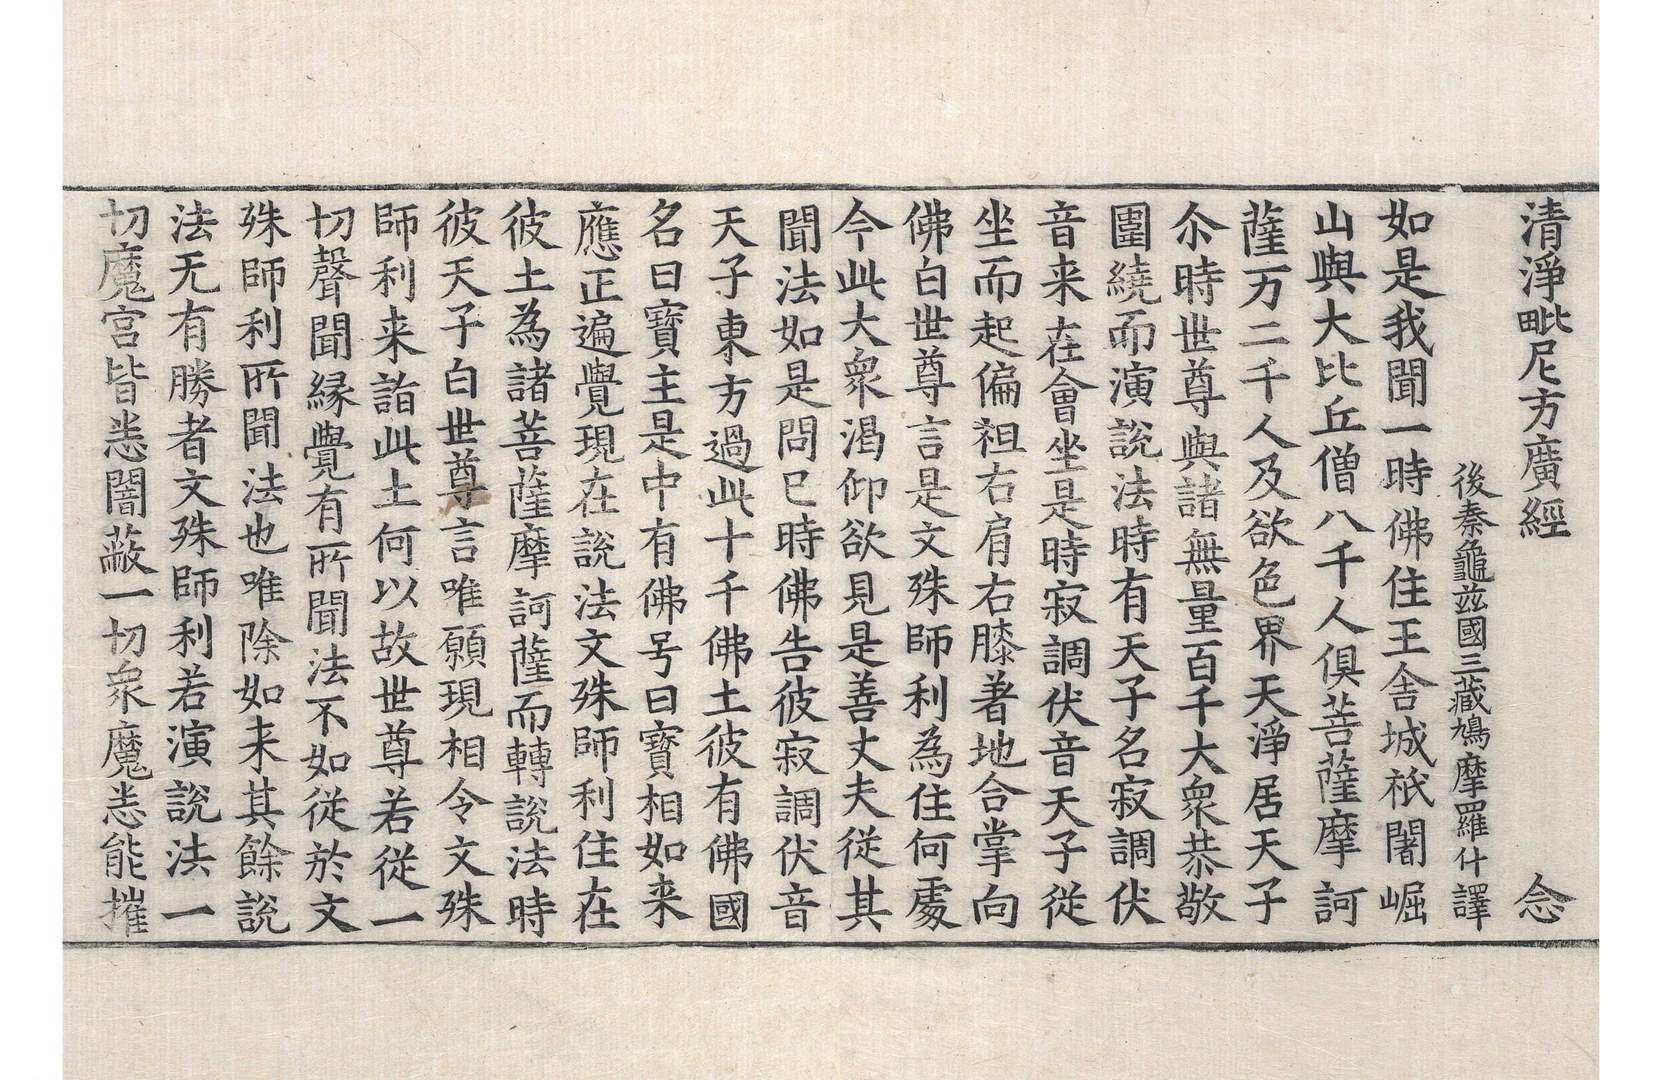 清淨毗尼方廣經 念
後秦龜茲國三藏鳩摩羅什譯
如是我聞一時佛住王舍城祇闍崛
山與大比丘僧八千人俱菩薩摩訶
薩万二千人及欲色界天淨居天子
尒時世尊與諸無量百千大衆恭敬
圍繞而演說法時有天子名寂調伏
音来在會坐是時寂調伏音天子從
坐而起偏袒右肩右膝著地合掌向
佛白世尊言是文殊師利為住何處
今此大衆渴仰欲見是善丈夫從其
聞法如是問已時佛告彼寂調伏音
天子東方過此十千佛土彼有佛國
名曰寶主是中有佛号曰寶相如来
應正遍覺現在說法文殊師利住在
彼土為諸菩薩摩訶薩而轉說法時
彼天子白世尊言唯願現相令文殊
師利来詣此土何以故世尊若從一
切聲聞緣覺有所聞法不如從於文
殊師利所聞法也唯除如来其餘說
法无有勝者文殊師利若演說法一
切魔宮皆悉闇蔽一切衆魔悉能摧